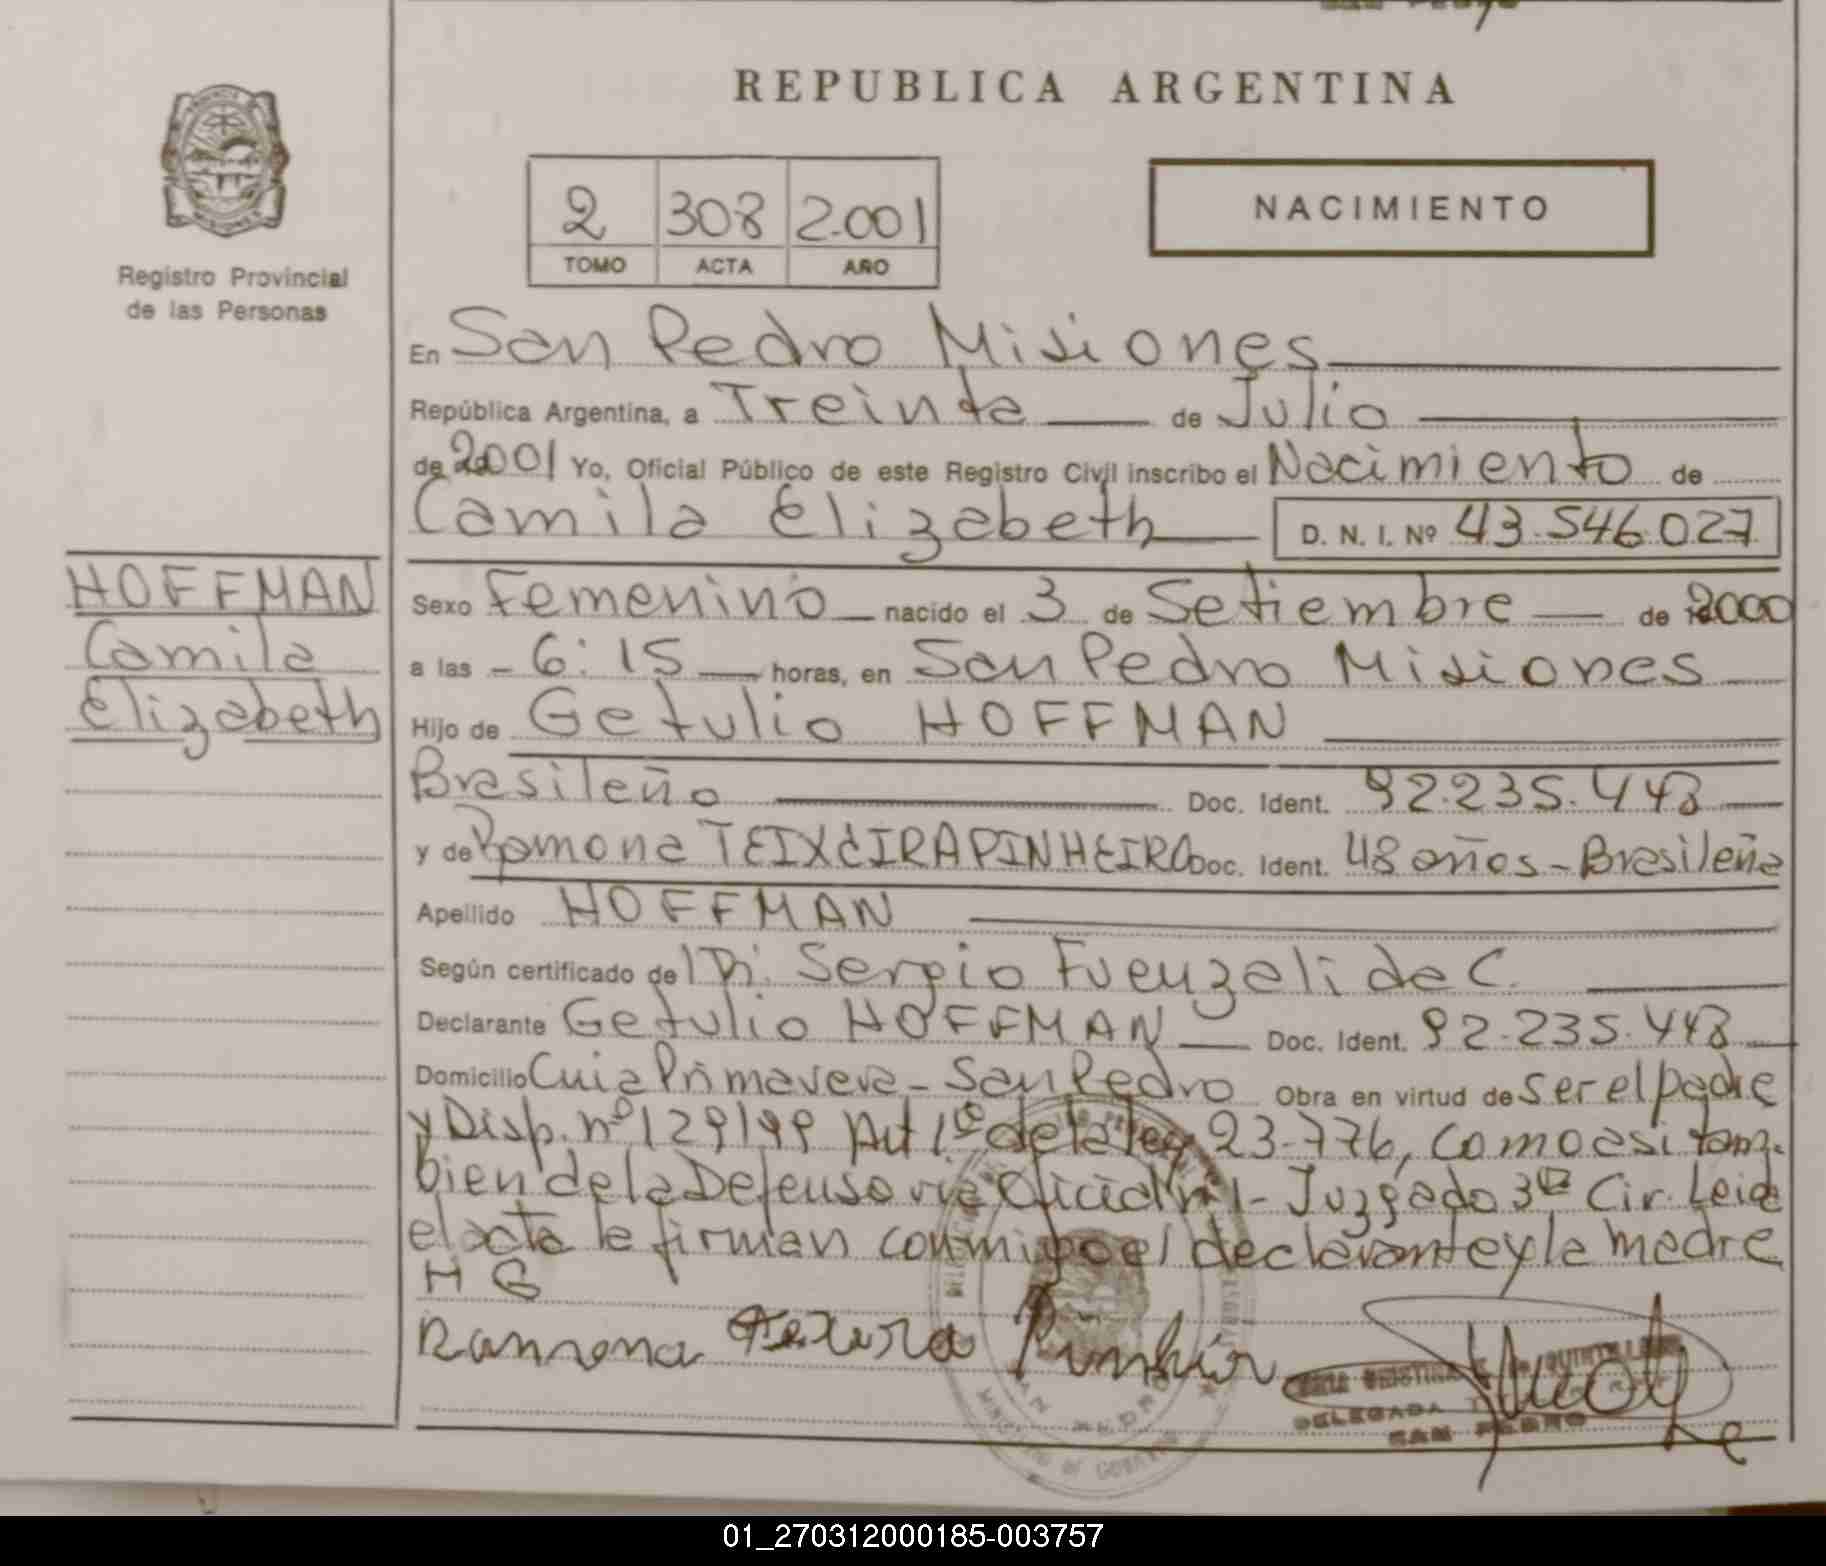 REPUBLICA ARGENTINA
Registro Provincial
de las Personas
2 308 2.001
TOMO ACTA AÑO
NACIMIENTO
En San Pedro Misiones
República Argentina, a Treinta de Julio
de 2001 Yo, Oficial Público de este Registro Civil inscribo el Nacimiento de
Camila Elizabeth D. N. I. Nº 43.546.027
HOFFMAN
Camila
Elizabeth
Sexo Femenino nacido el 3 de Setiembre de 2000
a las 6:15 horas, en San Pedro Misiones
Hijo de Getulio HOFFMAN
Brasileño Doc. Ident. 92.235.443
y de Ramona TEIXEIRA PINHEIRO Doc. Ident. 48 años - Brasileña
Apellido HOFFMAN
Según certificado de Dr. Sergio Fuenzalida C.
Declarante Getulio HOFFMAN Doc. Ident. 92.235.443
Domicilio Cuia Primavera - San Pedro Obra en virtud de ser el padre
y Disp. nº 129/99 Art 1º de la ley 23.776, como asi tam-
bien de la Defensoria Oficial nº 1 - Juzgado 3ª Cir. Leida
el acta la firman conmigo el declarante y la madre
H G
Ramona Texera
DELEGADA
SAN PEDRO
01_270312000185-003757